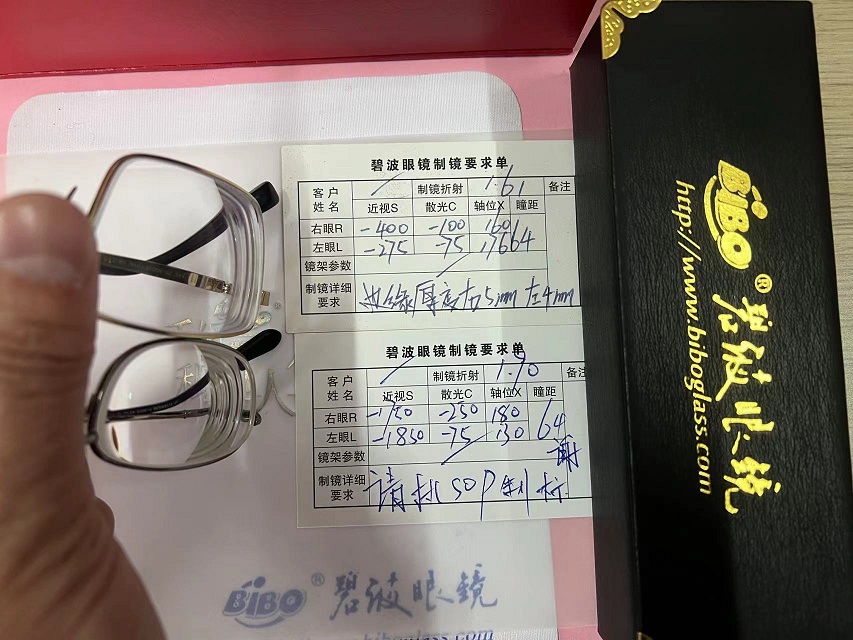 碧波眼镜制镜要求单
客户姓名 制镜折射 1.61 备注
近视S 散光C 轴位X 瞳距
右眼R -400 -100 160
左眼L -275 -75 176 64
镜架参数
制镜详细要求 边缘厚度右5mm左4mm
碧波眼镜制镜要求单
客户姓名 制镜折射 1.90 备注
近视S 散光C 轴位X 瞳距
右眼R -250 180
左眼L -1850 -75 130 64
镜架参数 谢
制镜详细要求 请按SOP制标
BiBO® 碧波眼镜
biboglass.com
BiBO® 碧波眼镜
http://www.biboglass.com